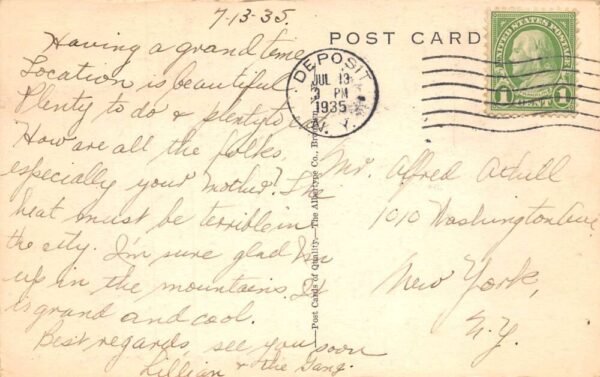 7-13-35.
Having a grand time
Location is beautiful
Plenty to do & plenty to
How are all the folks,
especially your mother? The
heat must be terrible in
the city. I'm sure glad I'm
up in the mountains. It
is grand and cool.
Best regards, see you soon
Lillian & the Gang.
POST CARD
DEPOSIT
JUL 13
PM
1935
N. Y.
UNITED STATES POSTAGE
1 CENT 1
Post Cards of Quality.—The Albertype Co., Brooklyn
Mr. Alfred
1010 Washington Ave
New York,
N.Y.